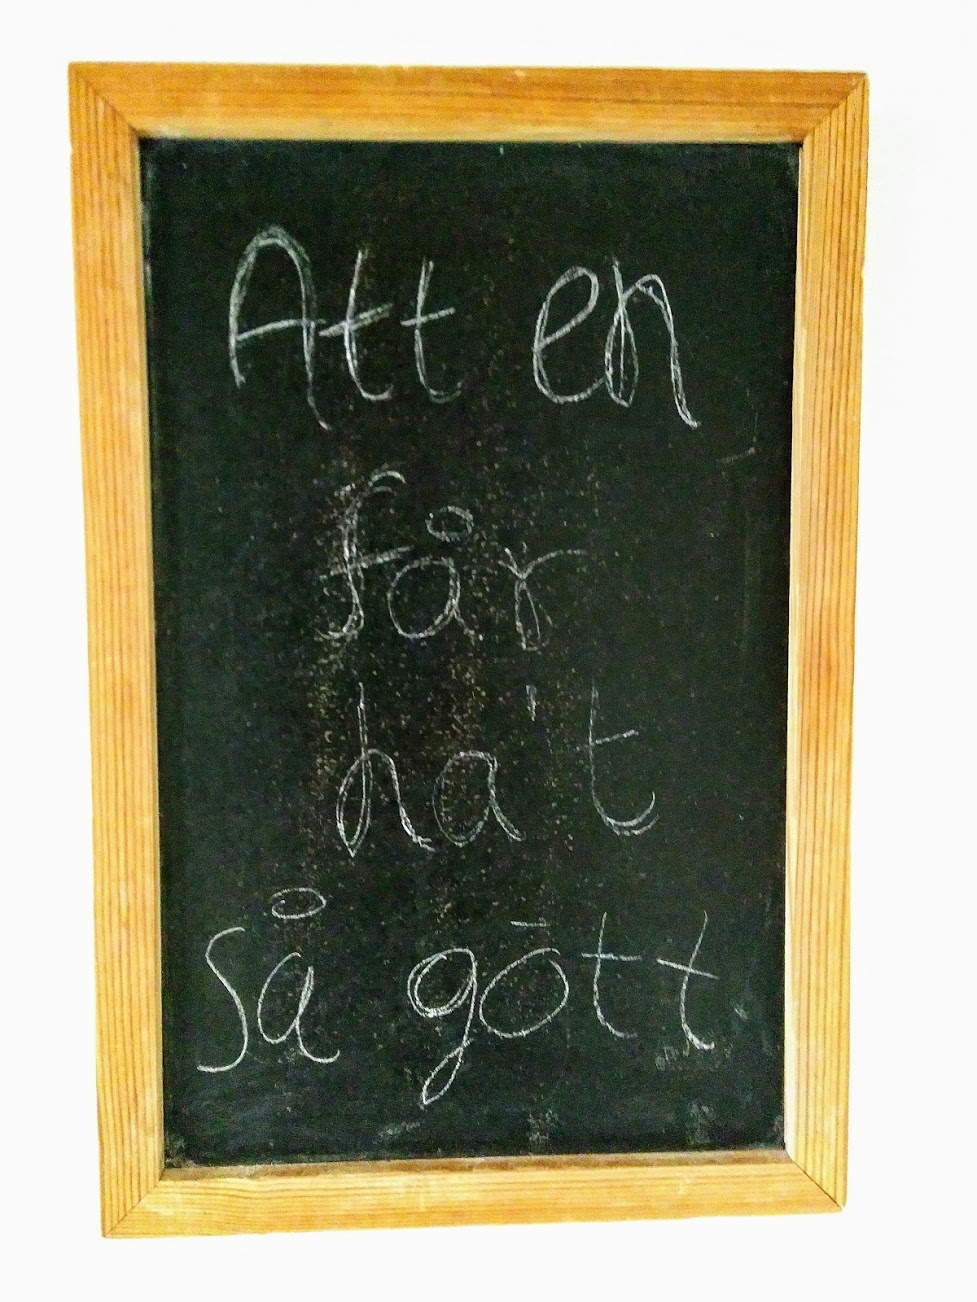 Att en
får
ha't
så gött